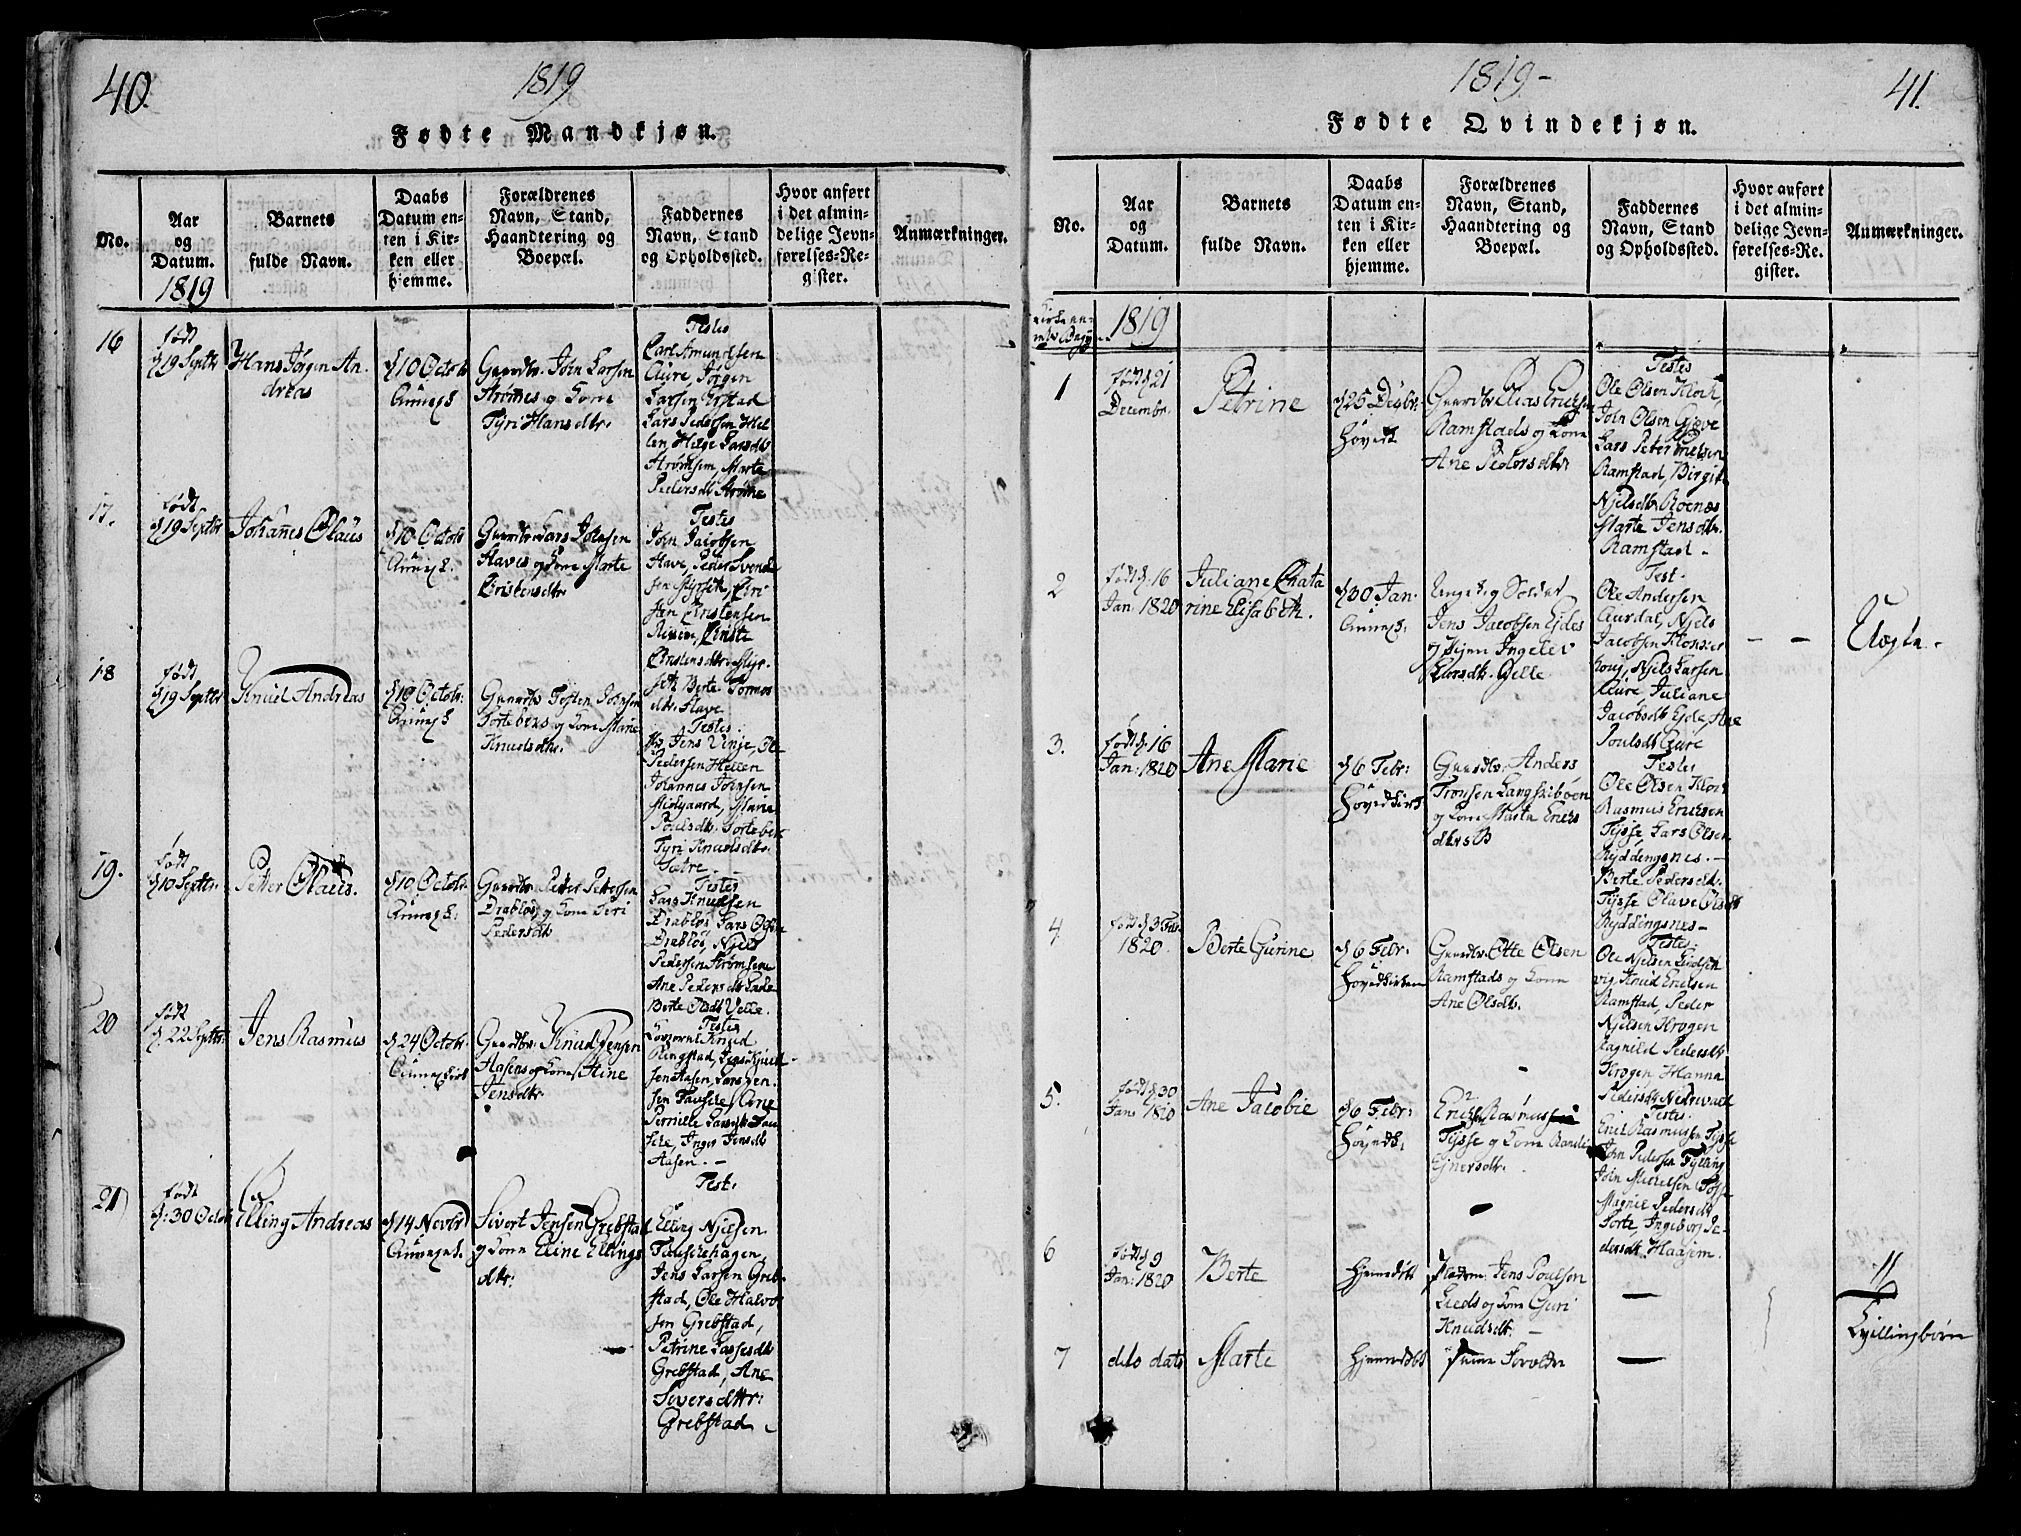 40.
1819
Fødte Mandkjøn.
No.
Aar
og
Datum.
1819
Barnets
fulde Navn.
Daabs
Datum en-
ten i Kir-
ken eller
hjemme.
Forældrenes
Navn, Stand,
Haandtering og
Boepæl.
Faddernes
Navn, Stand
og Opholdssted.
Hvor anført
i det almin-
delige Jevn-
førelses-Re-
gister.
Anmærkninger.
16
født
d 19 Septbr
Hans Jørgen An-
dreas
d 10 Octobr
Gaardbr. John Larsen
Strømes og Kone
Tyri Hansdtr.
Testes
Carl Amundsen
Aure, Jørgen
Larsen Erstad
Lars Pedersen Hel-
len Helge Larsdtr
Strømsem, Marte
Pedersdtr Strøme
17.
født
d 19 Septbr
Johannes Olaus
d 10 Octobr
Gaardbr Lars Johnsen
Haves og Kone Marte
Cristensdtr
Testes
John Jacobsen
Have, Peder Svend
sen
sen Cristensen
Cristensdtr
Berte
dtr. Have
18
født
d 19 Septbr
Knud Andreas
d 10 Octobr.
Gaardbr Testen Johnsen
Tortebers og Kone Marie
Knudsdtr.
Testes
Jens Vinje, Ole
Pedersen Hellen
Johannes Johnsen
Midgaard, Marie
Poulsdtr. Tortebers
Tyri Knudsdtr.
Sætre
19.
født
d 10 Septbr.
Petter Olaus.
d 10 Octobr
Gaardbr Petter Pettersen
Drabløs, og Kone Siri
Pedersdtr
Testes
Lars Knudsen
Drabløs Lars Olsen
Drabløs, Njels
Pedersen Strømsem
Ane Pedersdtr Lade
Berte Olsdtr Velle.
20
født
d. 22 Septbr.
Jens Rasmus
d 24 Octobr.
Gaardbr. Knud Jensen
Aasens og Kone Stine
Jensdtr
Testes
Knud
Ringstad, Jens Knud
sen Aasen, Lars Jen-
sen Fauske, Ane
Pernille Larsdtr Fau
ske, Inger Jensdtr
Aasen. —
21)
født
d. 30 Octobr
Elling Andreas
d 14 Novbr
Sivert Jensen Grebstad
og Kone Eline Ellings
dtr:
Test:
Elling Njelsen
Fauskehagen,
Jens Larsen Greb-
stad, Ole Halvor
sen Grebstad,
Petrine Lassesdtr
Grebstad, Ane
Siversdttr:
Grebstad
1819-
41.
Fødte Qvindekjøn.
No.
Aar
og
Datum.
Barnets
fulde Navn.
Daabs
Datum en-
ten i Kir-
ken eller
hjemme.
Forældrenes
Navn, Stand,
Haandtering og
Boepæl.
Faddernes
Navn, Stand
og Opholdssted.
Hvor anført
i det almin-
delige Jevn-
førelses-Re-
gister.
Anmærkninger.
1819
1
født d 21
Decembr.
Petrine
d 25 Decbr.
Hovedk
Gaardbr Elias Ericksen
Ramstads og Kone
Ane Pedersdtr
Testes
Ole Olsen Klock,
John Olsen Gjæve
Lars Petter Nielsen
Ramstad, Birgite
Njelsdtr Roenæs
Marte Jensdtr.
Ramstad —
2
født d. 16
Jan: 1820
Juliane Chata
rine Elisabeth.
d 30 Jan.
Ungek. og Soldat
Jens Jacobsen Ejdes
og Pigen Ingelev
Larsdtr. Velle
Test.
Ole Andersen
Aurdal, Njels
Jacobsen
Njels Larsen
Aure Juliane
Jacobsdtr Ejde, Ane
Poulsdtr Aure
— —
Uægte.
3.
født d. 16
Jan: 1820
Ane Marie
d 6 Febr:
Hovedkirk
Gaardbr. Anders
Tronsen Langskibsøen
og Kone Marta Ericks
dtr
Testes
Ole Olsen Klock
Rasmus Ericksen
Tysse Lars Olsen
Ryddingsnes. —
Berte Pedersdtr.
Tysse Olave Olsdtr
Ryddingsnes —
4
født d 3 Febr
1820.
Berte Gurine
d 6 Febr.
Hovedkirken
Gaardbr. Otte Olsen
Ramstads og Kone
Ane Olsdtr.
Testes:
Ole Njelsen
vig Knud Ericksen
Ramstad, Peder
Njelsen Krogen
Ragnild Pedersdtr
Krogen Hanna
Pedersdtr Nedrevaad
5.
født d 30
Jan: 1820
Ane Jacobie
d 6 Febr:
Hovedk.
Erick Rasmussen
Tysse og Kone Randi
Ejnersdtr.
Testes:
Erick Rasmussen Tysse
John Pedersen Fylling
John Tysse
Magnil Pedersdtr
Sorte, Ingeborg Pe-
dersdtr. Haajem.
6
født d 9
Jan: 1820
Berte
hjemedøbt
Jens Poulsen
Lieds og Kone Guri
Knudsdtr. —
—
11
Tvillingbørn
7
dito dato
Marte
hjemmedøbt
samme Forældre
—